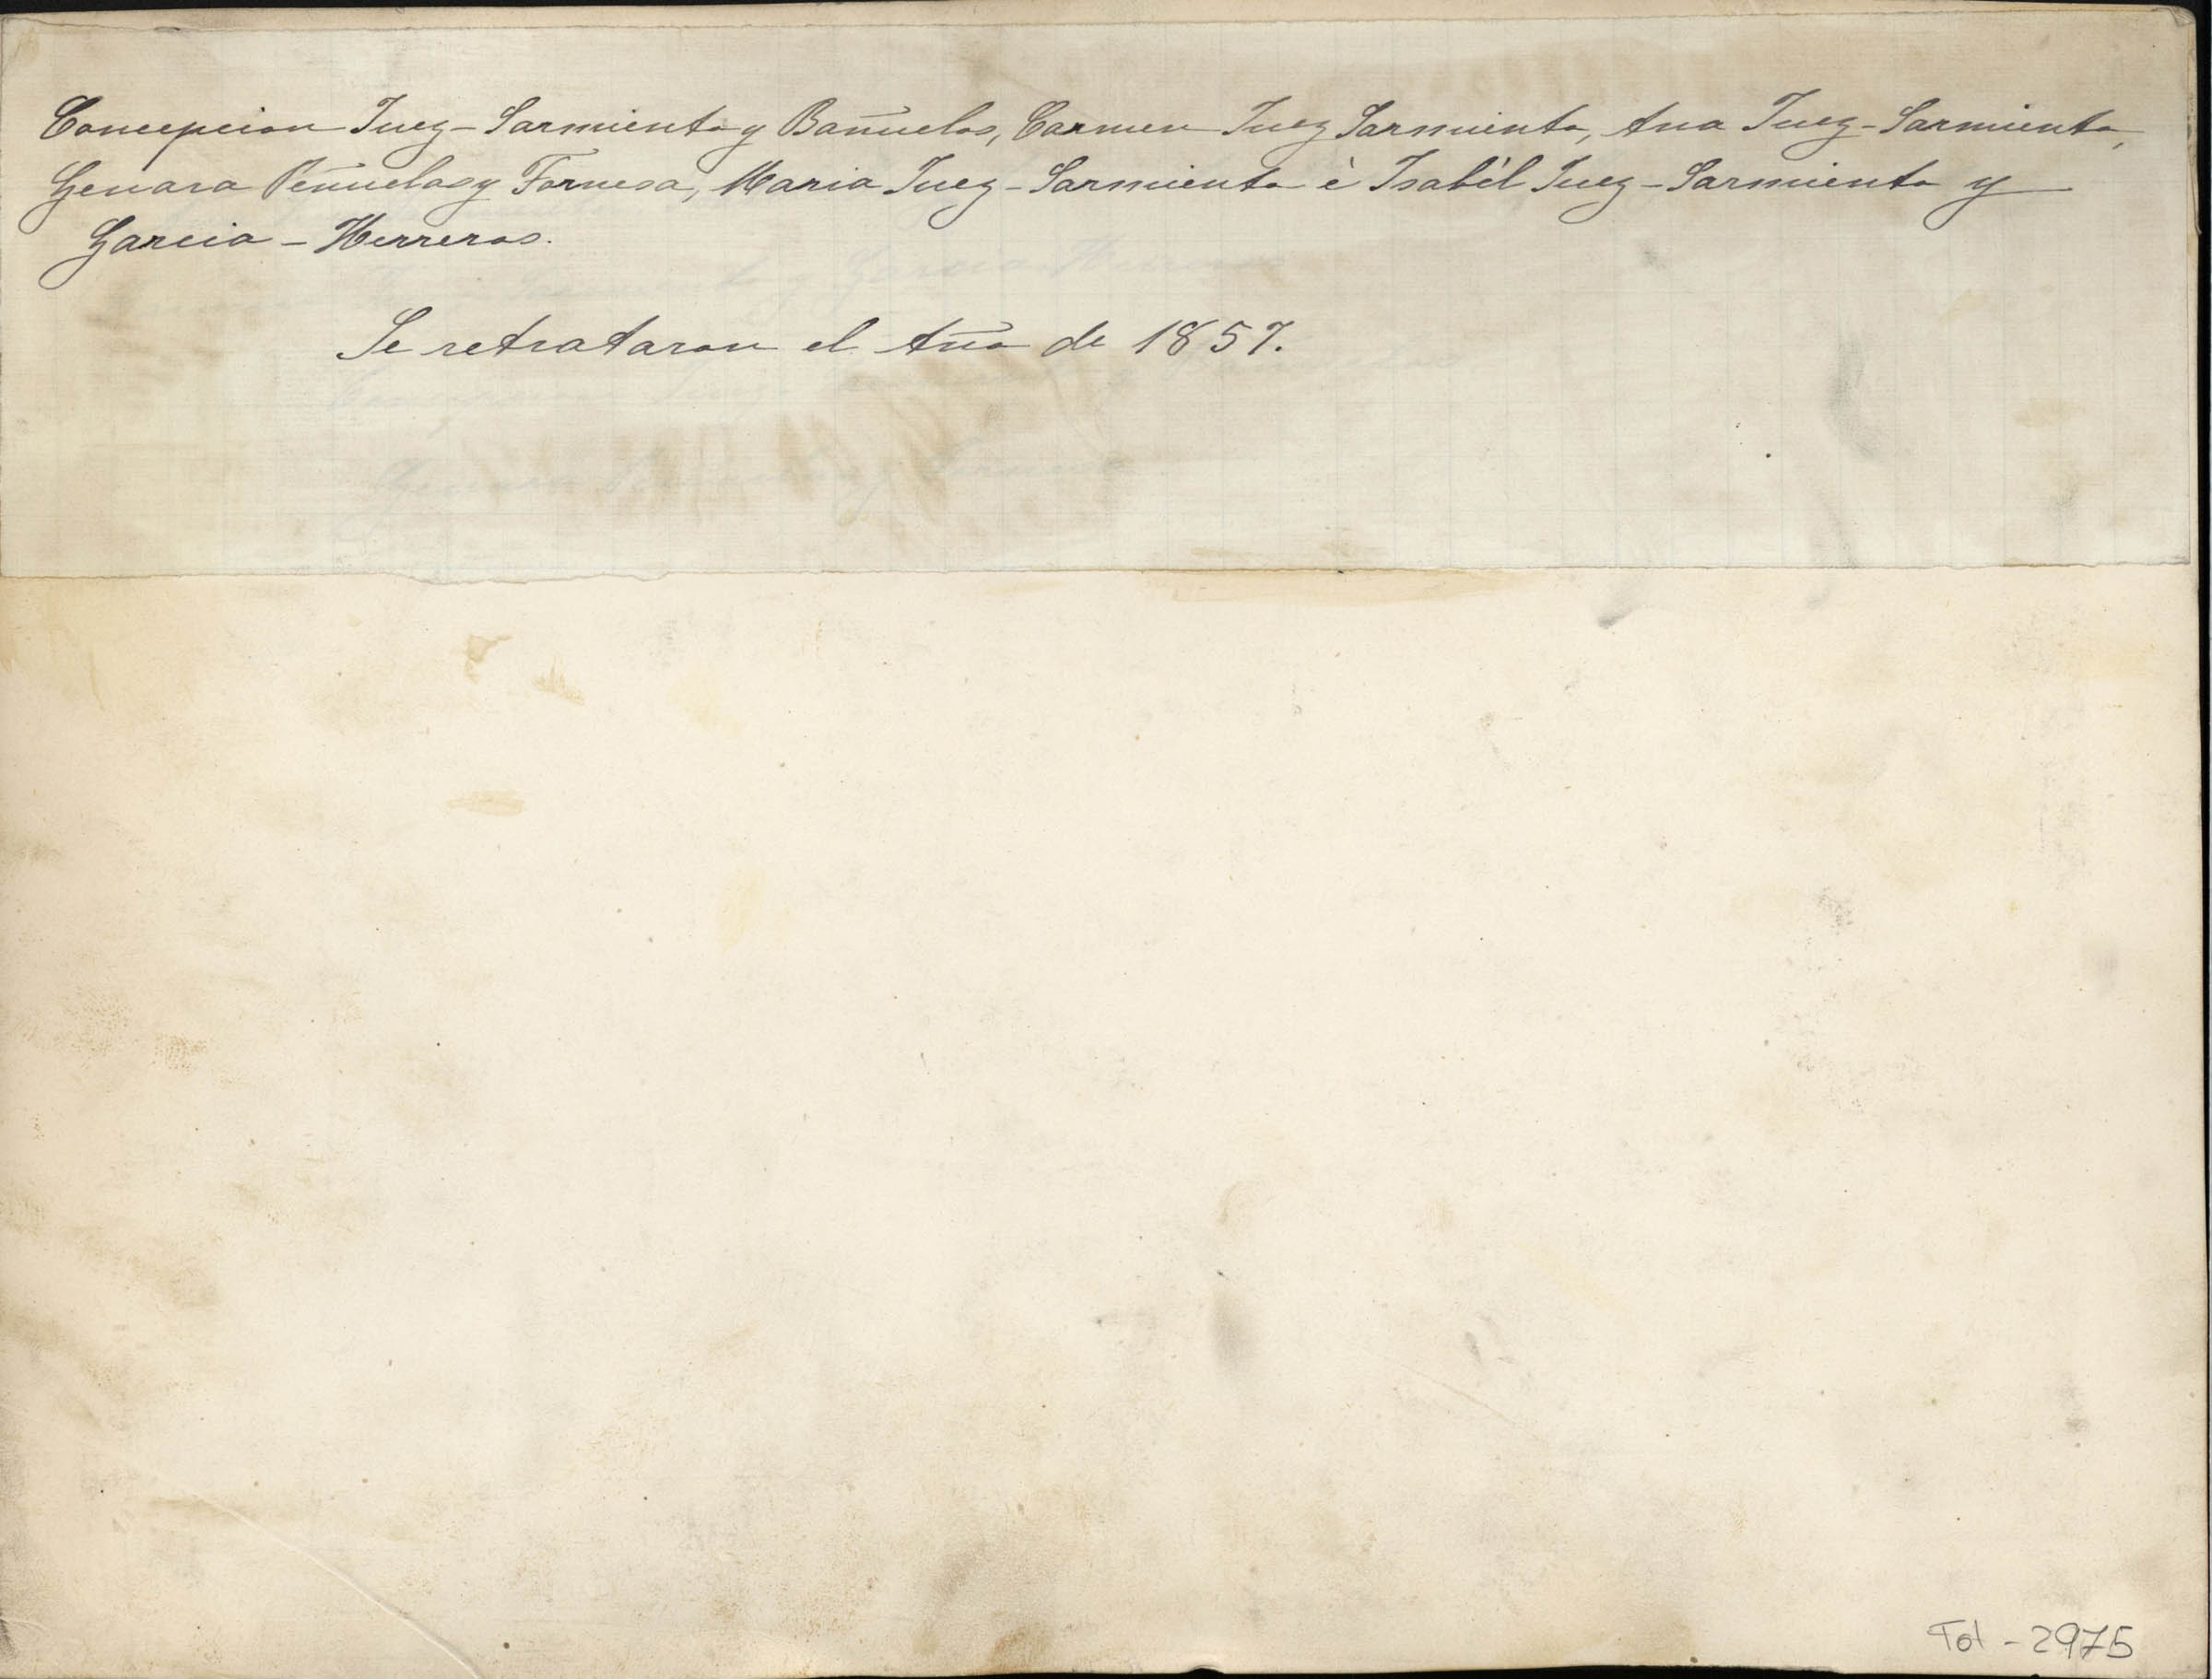 Concepcion Juez-Sarmiento y Bañuelos, Carmen Juez Sarmiento, Ana Juez-Sarmiento,
Genara Peñuelas y Fornesa, Maria Juez-Sarmiento è Isabél Juez-Sarmiento y
Garcia-Herreros.
Se retrataron el Año de 1857.
Fot - 2975